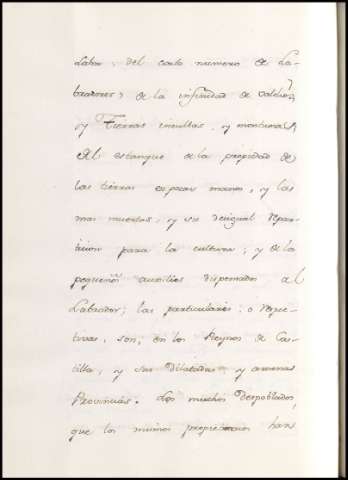 Labor; del corto numero de La-
bradores; de la infinidad de valdios,
y Tierras incultas, y montuosas;
del estanque de la propiedad de
las tierras en pocas manos, y las
mas muertas, y su desigual repar-
ticion para la cultura; y de los
pequeños auxilios dispensados al
Labrador; las particulares, o respec-
tivas, son, en los Reynos de Cas-
tilla, y sus dilatadas, y amenas
Provincias. Los muchos despoblados,
que los mismos propietarios han